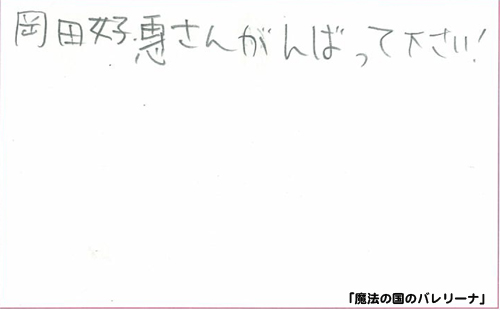 岡田好恵さんがんばって下さい!
「魔法の国のバレリーナ」